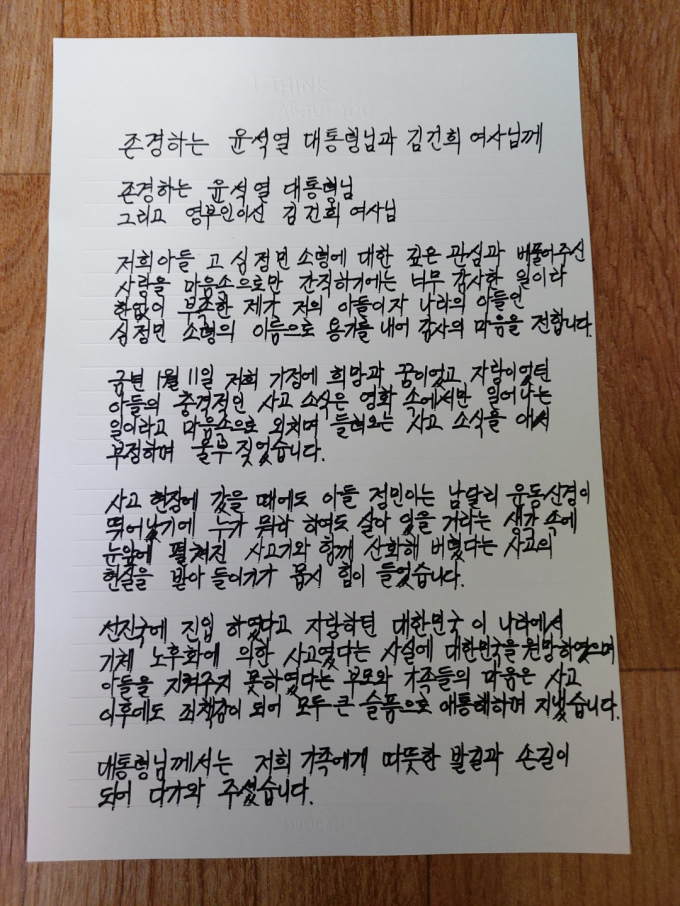 I THINK
About You
존경하는 윤석열 대통령님과 김건희 여사님께
존경하는 윤석열 대통령님
그리고 영부인이신 김건희 여사님
저희아들 고 심정민 소령에 대한 깊은 관심과 베풀어주신
사랑을 마음속으로만 간직하기에는 너무 감사한 일이라
한없이 부족한 제가 저의 아들이자 나라의 아들인
심정민 소령의 이름으로 용기를 내어 감사의 마음을 전합니다.
금년 1월 11일 저희 가정에 희망과 꿈이었고 자랑이었던
아들의 충격적인 사고 소식은 영화 속에서만 일어나는
일이라고 마음속으로 외치며 들려오는 사고 소식을 애써
부정하며 울부짖었습니다.
사고 현장에 갔을 때에도 아들 정민이는 남달리 운동신경이
뛰어났기에 누가 뭐라 하여도 살아 있을 거라는 생각 속에
눈앞에 펼쳐진 사고기와 함께 산화해 버렸다는 사고의
현실을 받아 들이기가 몹시 힘이 들었습니다.
선진국에 진입 하였다고 자랑하던 대한민국 이 나라에서
기체 노후화에 의한 사고였다는 사실에 대한민국을 원망하였으며
아들을 지켜주지 못하였다는 부모와 가족들의 마음은 사고
이후에도 죄책감이 되어 모두 큰 슬픔으로 애통해하며 지냈습니다.
대통령님께서는 저희 가족에게 따뜻한 발길과 손길이
되어 다가와 주셨습니다.